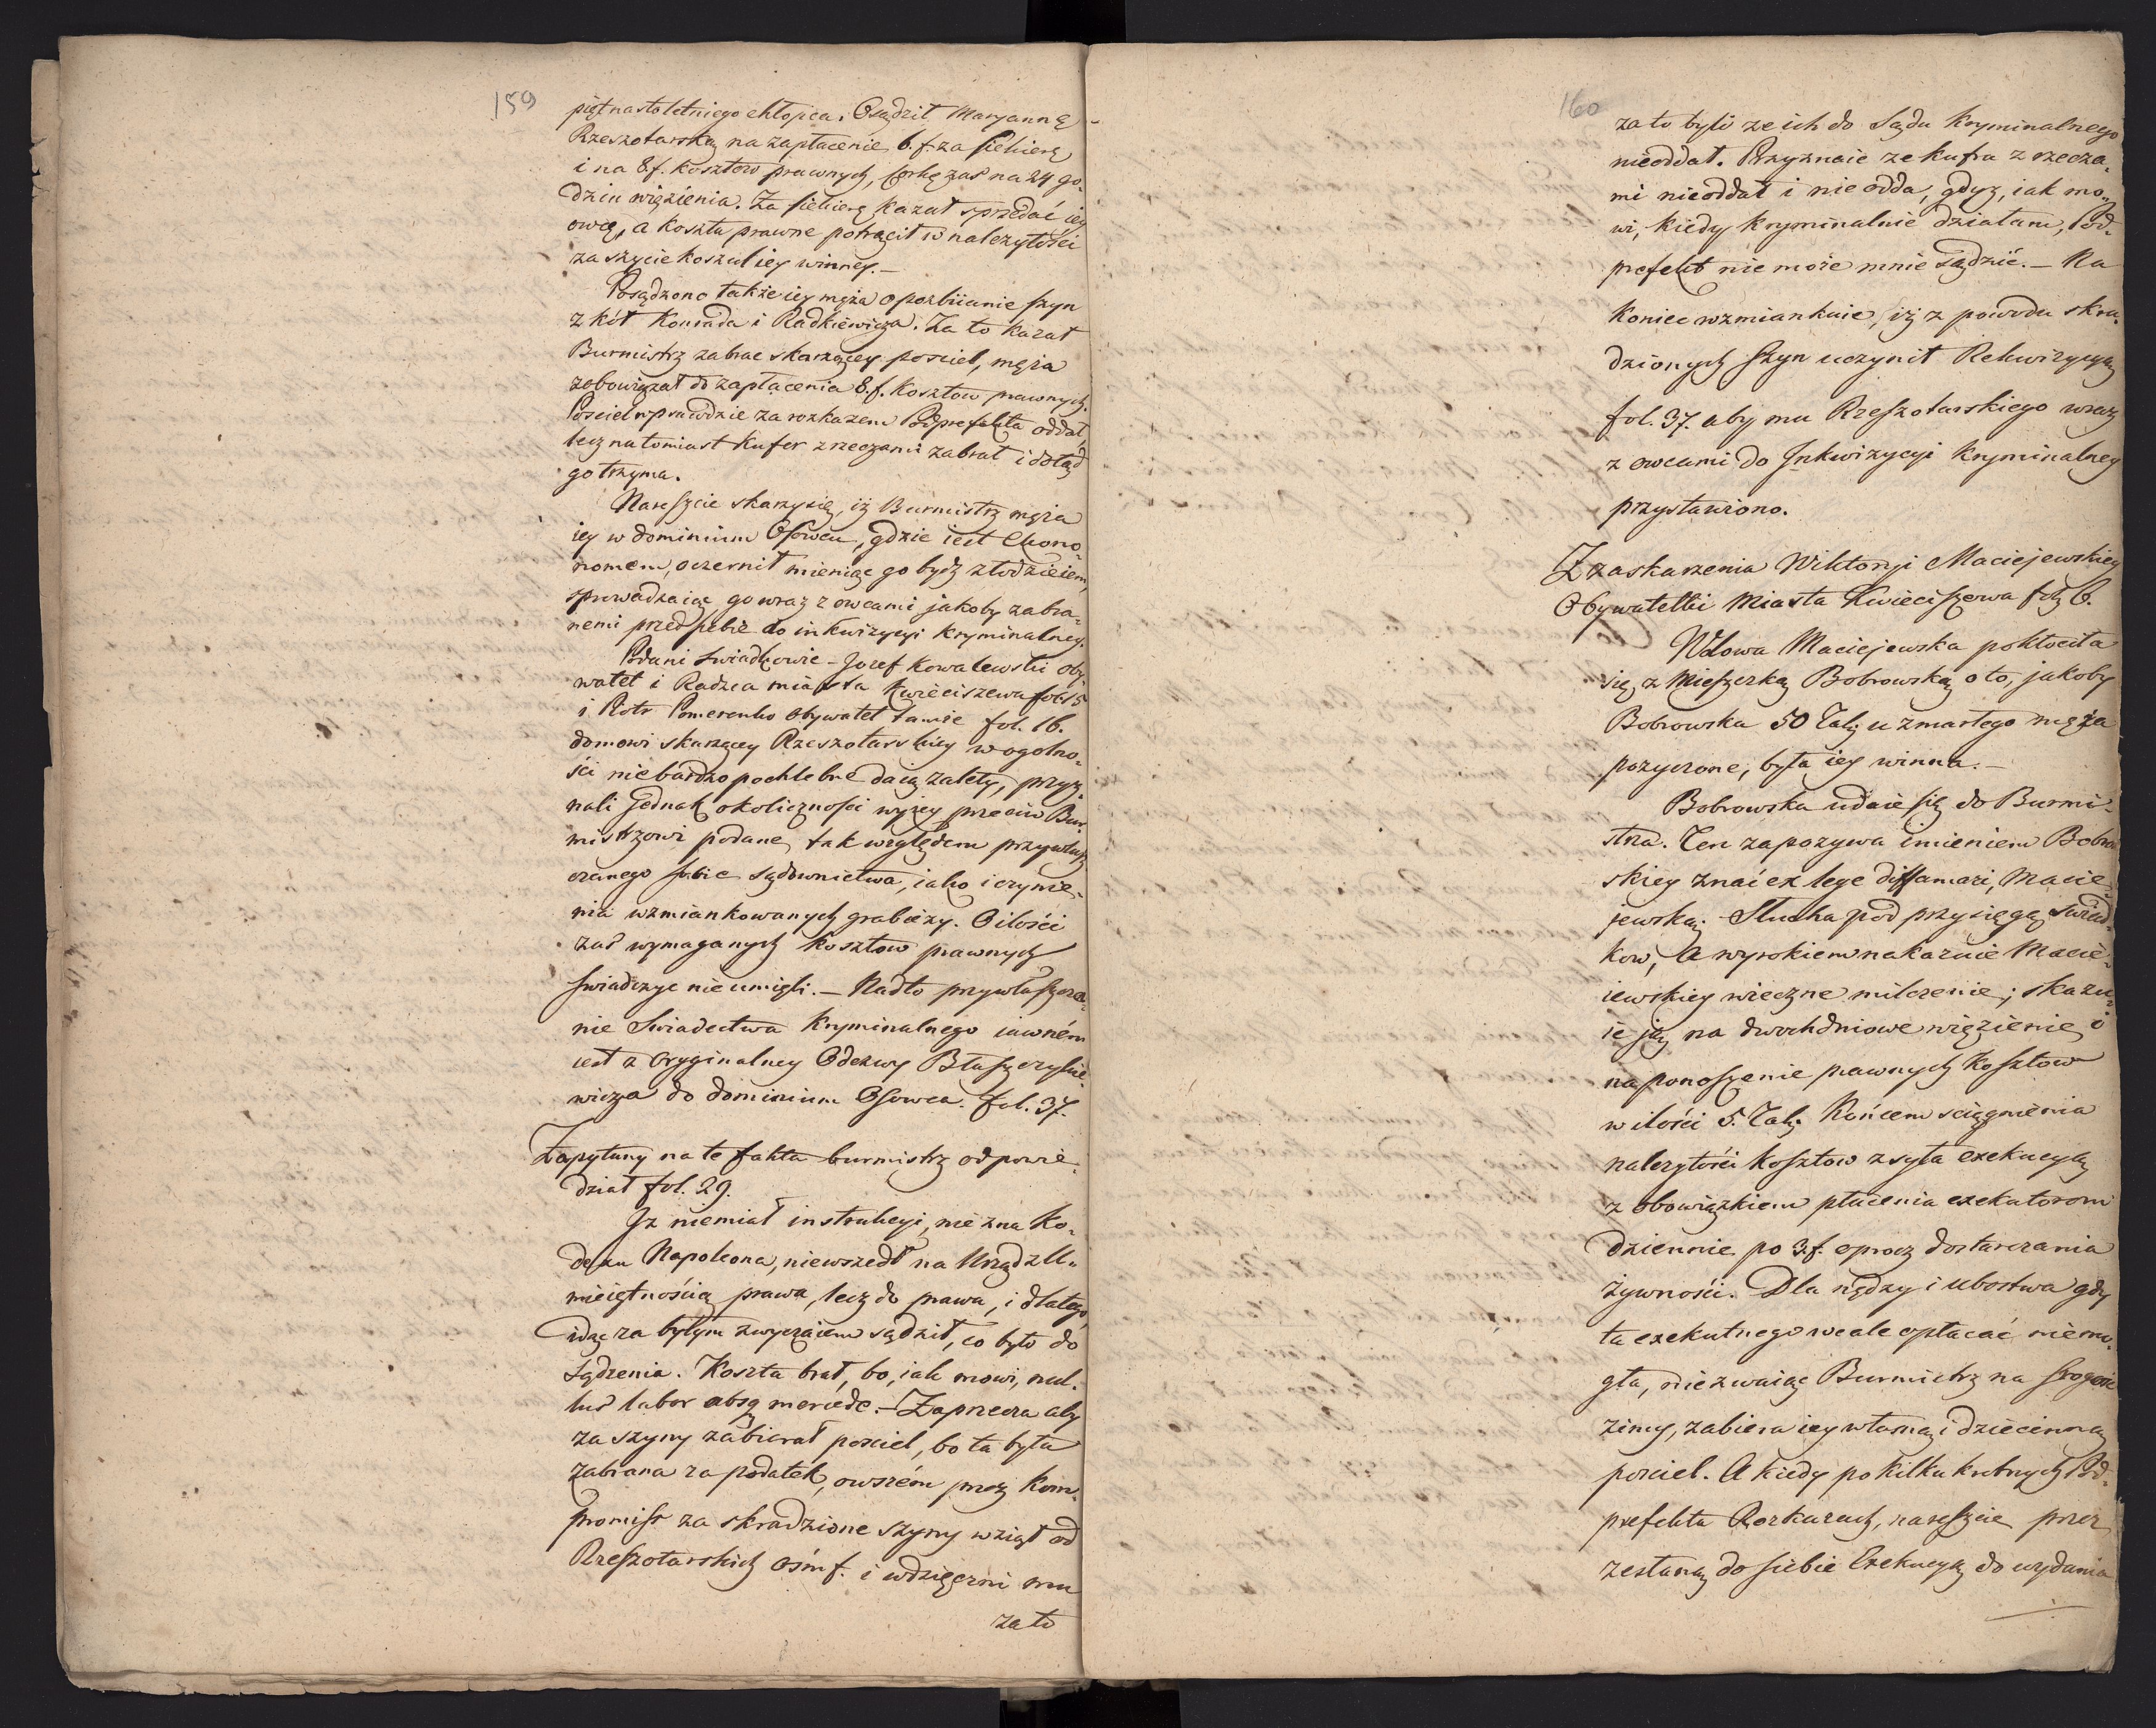 159
piętnastoletniego chłopca. Osądził Maryannę
Rzeszotarską na zapłacenie 6. f. za siekierę
i na 8 f. kosztow prawnych, corkę zaś na 24 go-
dzin więzienia. Za siekierę kazał sprzedać iey
owcę, a koszta prawne potrącił w należytości
za szycie koszul iey winney. —
Posądzono także iey męża o porbiianie szyn
z kół Konrada i Radkiewicza. Za to kazał
Burmistrz zabrac skarzącey posciel, męża
zobowiązał do zapłacenia 8. f. kosztow prawnych.
Posciel wprawdzie za rozkazem Podprefekta oddał,
lecz natomiast kufer z rzeczami zabrał i dotąd
go trzyma.
Nareszcie skarzy się, iż Burmistrz męża
iey w dominium Osowcu, gdzie iest Ekono-
nomem, oczernił mieniąc go bydz złodzieiem,
sprowadzaiąc go wraz z owcami jakoby zabra-
nemi przed siebie do inkwizycyi kryminalney.
Podani swiadkowie — Jozef Kowalewski oby-
watel i Radzca miasta Kwieciszewa fol. 15
i Piotr Pomerenko obywatel tamże fol. 16.
domowi skarzącey Rzeszotarskiey w ogolno-
ści niebardzo pochlebne daią zalety, przyz-
nali jednak okoliczności wyzey przeciw Bur-
mistrzowi podane, tak względem przywłasz
czanego sobie sądownictwa, iako i czynie-
nia wzmiankowanych grabieży. O ilości
zaś wymaganych kosztow prawnych
swiadczyc nie umieli. — Nadto przywłaszcze-
nie Swiadectwa kryminalnego iawném
iest z oryginalney Odezwy Błaszczykie-
wicza do dominium Osowca. fol. 37.
Zapytany na te fakta burmistrz odpowie-
dział fol. 29.
Iz niemiał instrukcyi, nie zna Ko-
dexu Napoleona, niewszedł na Urząd z U-
mieiętnością prawa, lecz do prawa, i dlatego,
idąc za byłym zwyczaiem sądził, co było do
sądzenia. Koszta brał, bo, iak mowi, nul-
lus labor absq mercede. — Zaprzecza aby
za szyny zabierał posciel, bo ta była
zabrana za podatek, owszém przez kom-
promiss za skradzione szyny wziął od
Rzeszotarskich osm f. i wdzięczni mu
za to
160
za to byli ze ich do Sądu kryminalnego
nieoddał. Przyznaie ze kufra z rzecza-
mi nieoddał i nie odda, gdyz, iak mo-
wi, kiedy kryminalnie działam, Pod-
prefekt nie może mnie sądzić. — Na
koniec wzmiankuie, iż z powodu skra-
dzionych szyn uczynił Rekwizycyą
fol. 37. aby mu Rzeszotarskiego wraz
z owcami do Inkwizycyi kryminalney
przystawiono.
Z zaskarzenia Wiktoryi Maciejewskiey
Obywatelki Miasta Kwieciszewa fol. 6.
Wdowa Maciejewska pokłociła
się z Mieszczką Bobrowską o to, jakoby
Bobrowska 50 Tal. u zmarłego męża
pozyczone, była iey winna. —
Bobrowska udaie się do Burmi-
strza. Ten zapozywa imieniem Bobrow
skiey znać ex lege diffamari, Macie-
jewską. Słucha pod przysięgą swiad-
kow, A wyrokiem nakazuie Macie-
iewskiey wieczne milczenie; skazu-
ie ją na dwochdniowe więzienie i
na ponoszenie prawnych kosztow
w ilości 5. Tal. Końcem sciągnienia
nalezytości kosztow zsyła exekucyą
z obowiązkiem płacenia exekutorom
dziennie po 3 f. oprocz dostarczania
żywności. Dla nędzy i ubostwa gdy
ta exekutnego wcale opłacać niemo-
gła, niezwaiąc Burmistrz na srogosc
zimy, zabiera iey własną i dziecinną
posciel. A kiedy po kilkukrotnych Pod-
prefekta Rozkazach, nareszcie przez
zesłaną do siebie Exekucyą do wydania